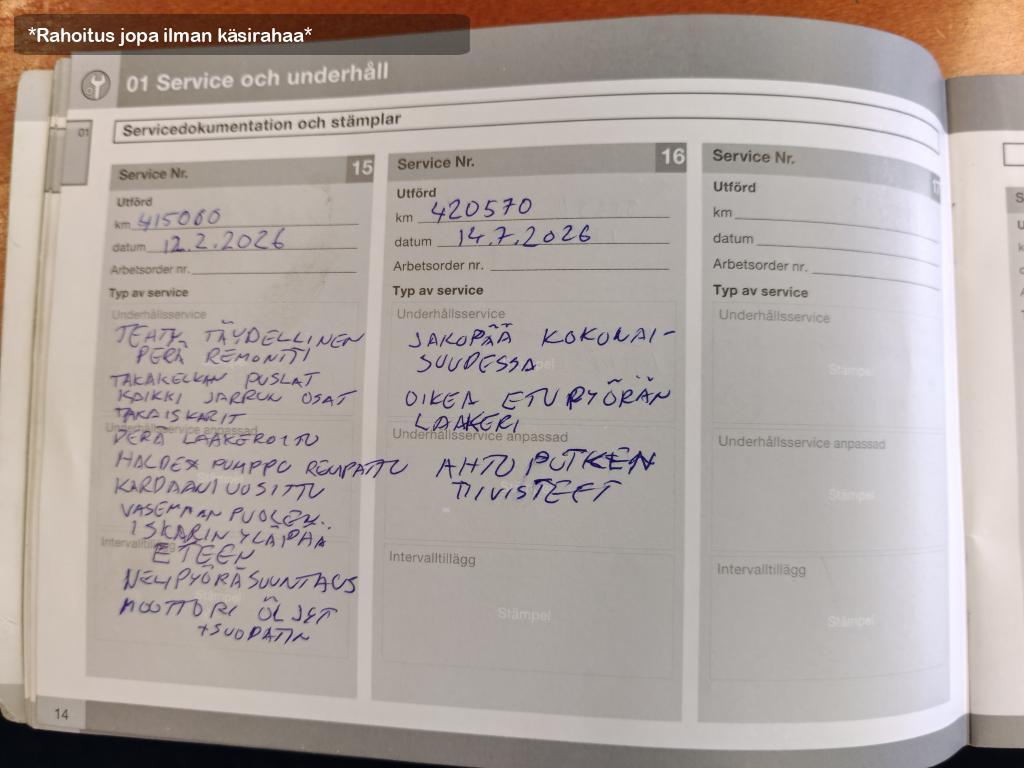 *Rahoitus jopa ilman käsirahaa*
01 Service och underhåll
01
Servicedokumentation och stämplar
Service Nr. 15
Utförd
km 415000
datum 12.2.2026
Arbetsorder nr.
Typ av service
Underhållsservice
TEHTY TÄYDELLINEN
PERÄ REMONTTI
TAKAKELKAN PUSLAT
KAIKKI JARRUN OSAT
TAKAISKARIT
Underhållsservice anpassad
PERÄ LAAKEROITU
HALDEX PUMPPU REMPATTU
KARDAANI UUSITTU
VASEMMAN PUOLEN
ISKARIN YLÄPÄÄ
Intervalltillägg
ETEEN
NELIPYÖRÄSUUNTAUS
MOOTTORI ÖLJYT
+SUODATIN
Service Nr. 16
Utförd
km 420570
datum 14.7.2026
Arbetsorder nr.
Typ av service
Underhållsservice
JAKOPÄÄ KOKONAI-
SUUDESSA
OIKEA ETUPYÖRÄN
LAAKERI
Underhållsservice anpassad
AHTOPUTKEN
TIIVISTEET
Intervalltillägg
Stämpel
Service Nr.
Utförd
km
datum
Arbetsorder nr.
Typ av service
Underhållsservice
Stämpel
Underhållsservice anpassad
Stämpel
Intervalltillägg
Stämpel
14